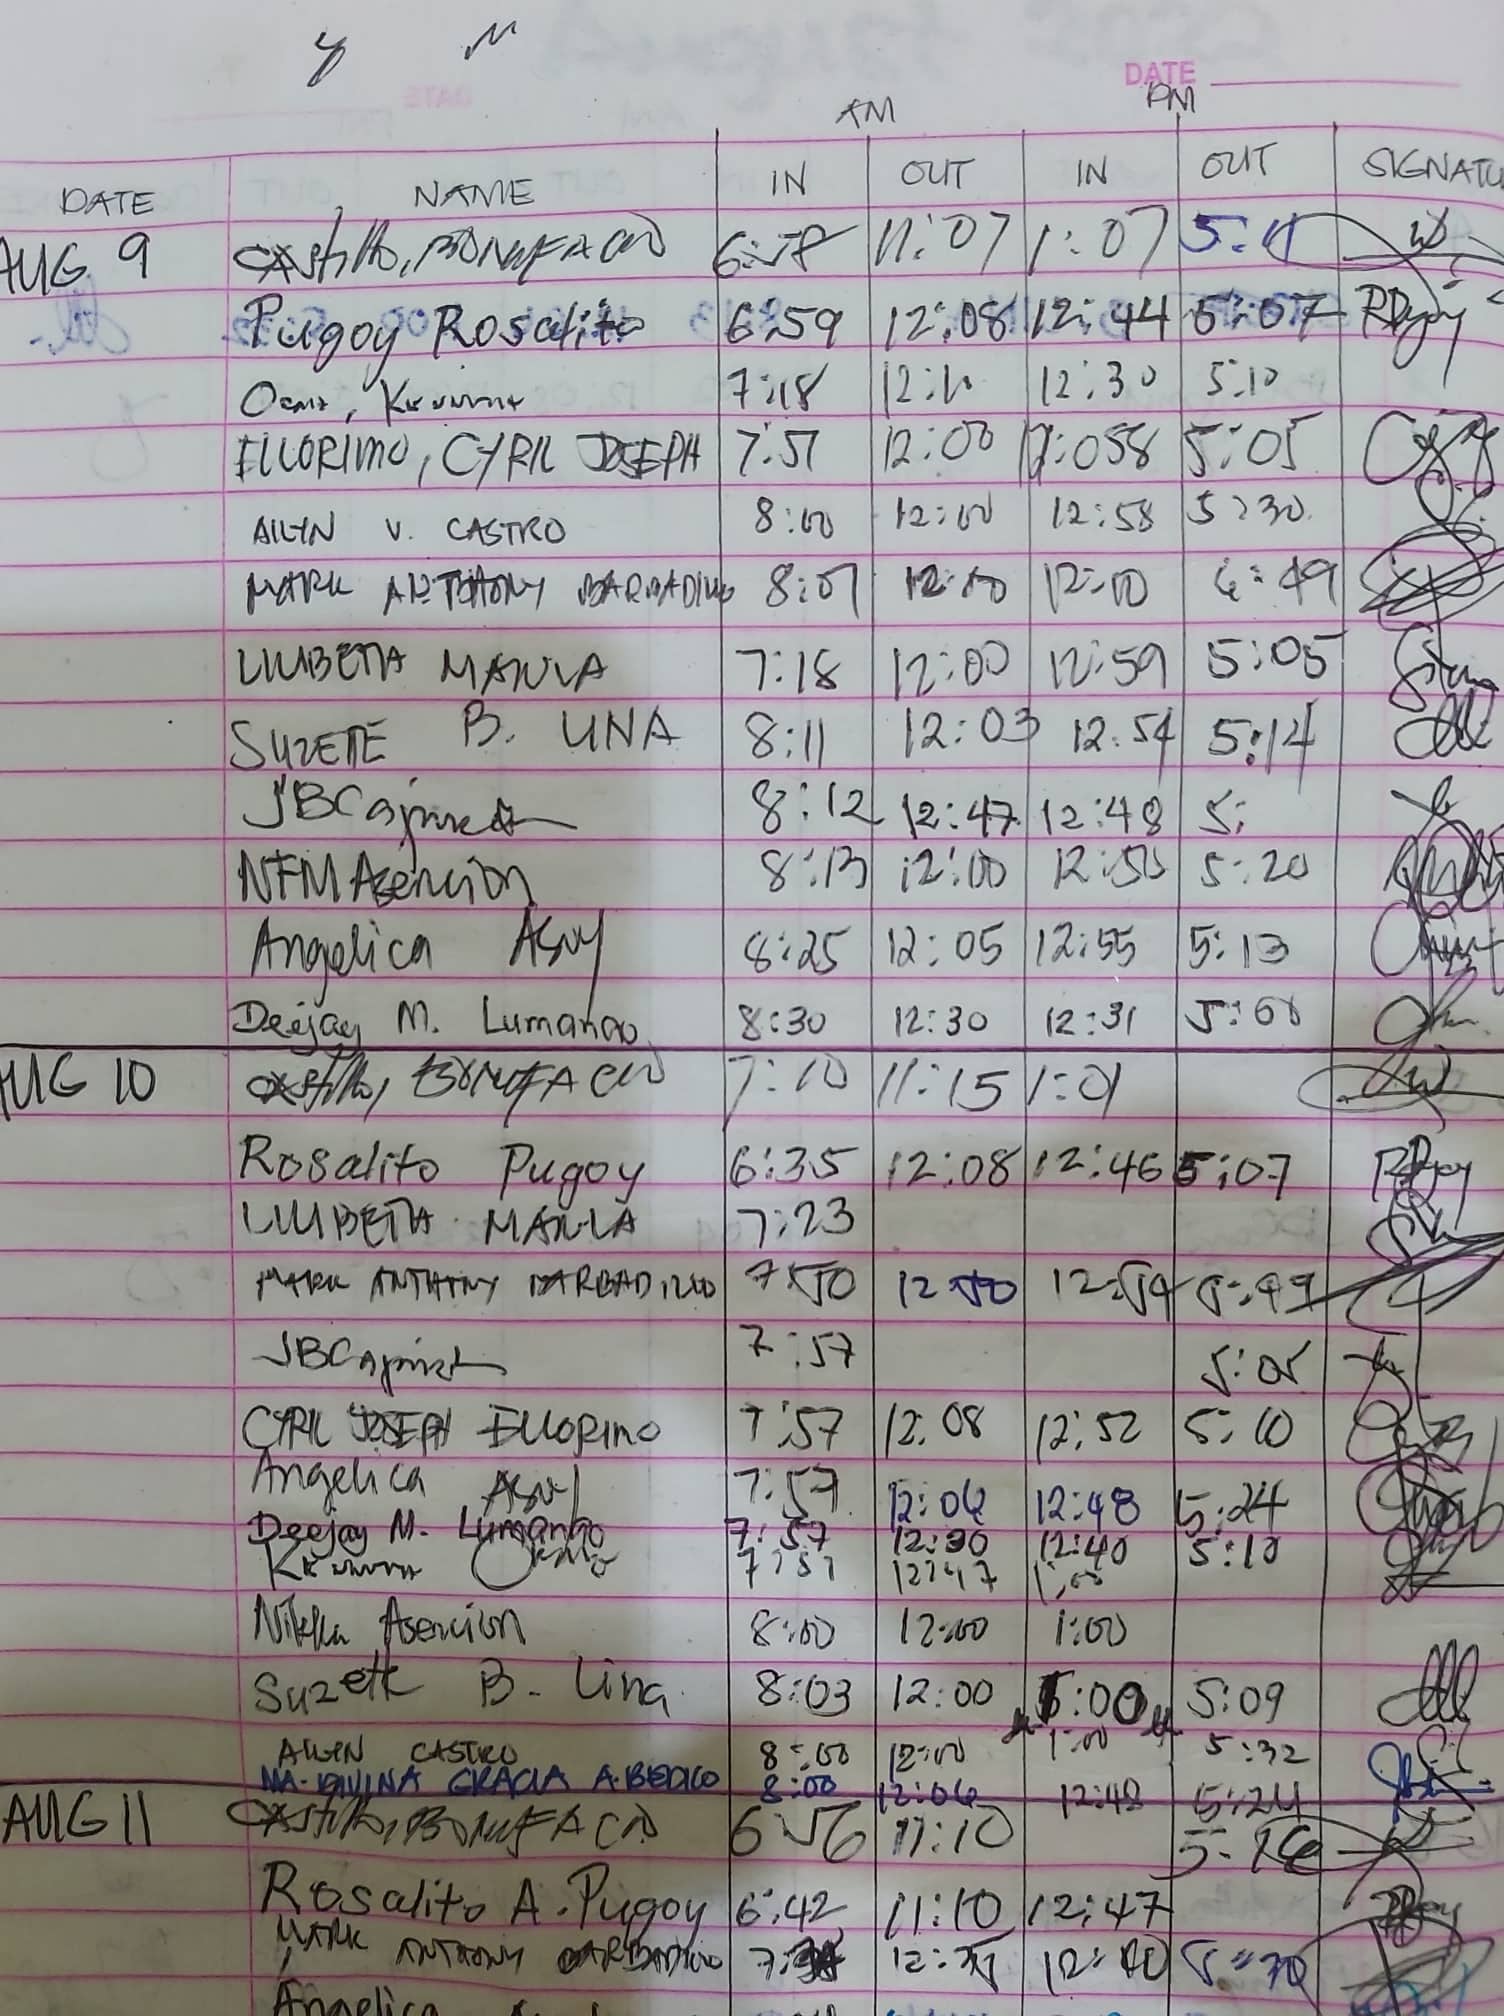 DATE
AM PM
DATE NAME IN OUT IN OUT SIGNATU
AUG 9 Castillo, BONIFACIO 6:58 11:07 1:07 5:11
Pugoy Rosalito 6:59 12:08 12:44 5:07
7:18 12:10 12:30 5:10
ELLORIMO, CYRIL JOSEPH 7:51 12:00 5:05
AILYN V. CASTRO 8:00 12:00 12:58 5:30
MARK ANTHONY BARBADILLO 8:01 12:00 12:00 4:49
LILIBETH MANLA 7:18 12:00 12:59 5:05
SUZETTE B. LINA 8:11 12:03 12:54 5:14
JBCajmes 8:12 12:47 12:48 5:
NFM Asencion 8:13 12:00 12:50 5:20
Angelica 8:25 12:05 12:55 5:13
Deejay M. Lumanao 8:30 12:30 12:31 5:08
AUG 10 Castillo, BONIFACIO 7:10 11:15 1:01
Rosalito Pugoy 6:35 12:08 12:46 5:07
LILIBETH MANLA 7:23
MARK ANTHONY BARBADILLO 7:50 12:50 12:54 5:49
7:57 5:05
CYRIL JOSEPH ELLORIMO 7:57 12:08 12:52 5:10
Angelica 7:57 12:06 12:48 5:24
Deejay M. Lumanao 7:57 12:30 12:40 5:10
7:57 12:47
Nikka Asencion 8:00 12:00 1:00
Suzette B. Lina 8:03 12:00 5:09
AILYN CASTRO 8:00 12:00 1:00 5:32
MA. DIVINA GRACIA A. BEDICO 8:00 12:06 12:48 5:24
AUG 11 Castillo, BONIFACIO 6:56 11:10
Rosalito A. Pugoy 6:42 11:10 12:47
MARK ANTHONY BARBADILLO 12:35 12:40 5:30
Angelica